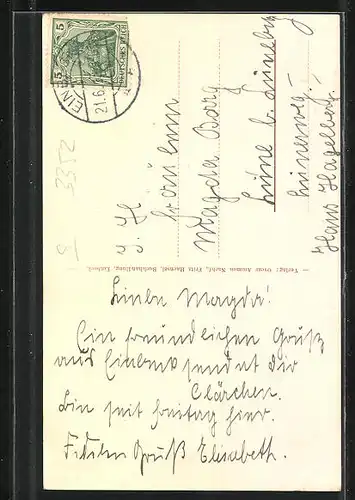 EINB
21.6.
DEUTSCHES REICH
5 5
S 3352
I. H.
Fräulein
Magda Barg
Lüne b. Lüneburg
Lünerweg.
Haus Hagelberg.
Verlag: Oscar Aumann Nachf., Fritz Haumel, Buchhandlung, Einbeck.
Liebe Magda!
Ein freundlichen Gruß
aus Einbeck sendet dir
Clärchen.
Bin seit Freitag hier.
Fidelen Gruß Elisabeth.